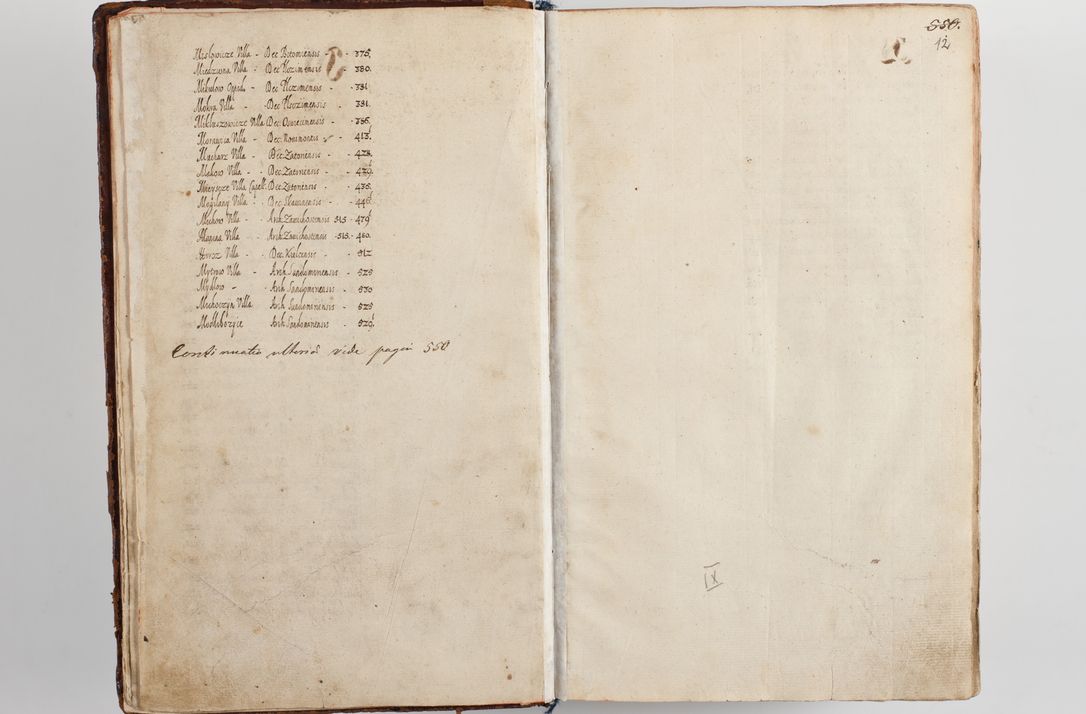 Mislowicze Villa - Dec Bytomiensis - - 375.
Miedzwna Villa - Dec Pczimensis - 380.
Mikulow Oppid. - Dec Plczimensis - 381
Mokra Villa - Dec Plsczimensis - 381.
Mikluszowicze Villa Dec: Osvecimensis - 386.
Morawica Villa - Dec: Novimontis - 413
Mucharz Villa - Dec: Zatoriensis - 428.
Makow Villa - Dec: Zatoriensis - 429
Villa Dec: Zatoriensis - 435.
Mogilany Villa - Dec: Skavinensis - 446
Mechow Villa - Arch Zawichostensis 515 - 479
Villa - Arch Zawichostensis - 515 - 480.
Villa - Dec: Kielcensis - 512
Villa - Arch Sandomiriensis - 525
- Arch Sandomiriensis - 530
Mechoczyn Villa Arch Sandomiriensis - 525
Modlibozyce Arch Sandomiriensis - 529
Continuatio ulterior vide pagin 550
550.
12
IX